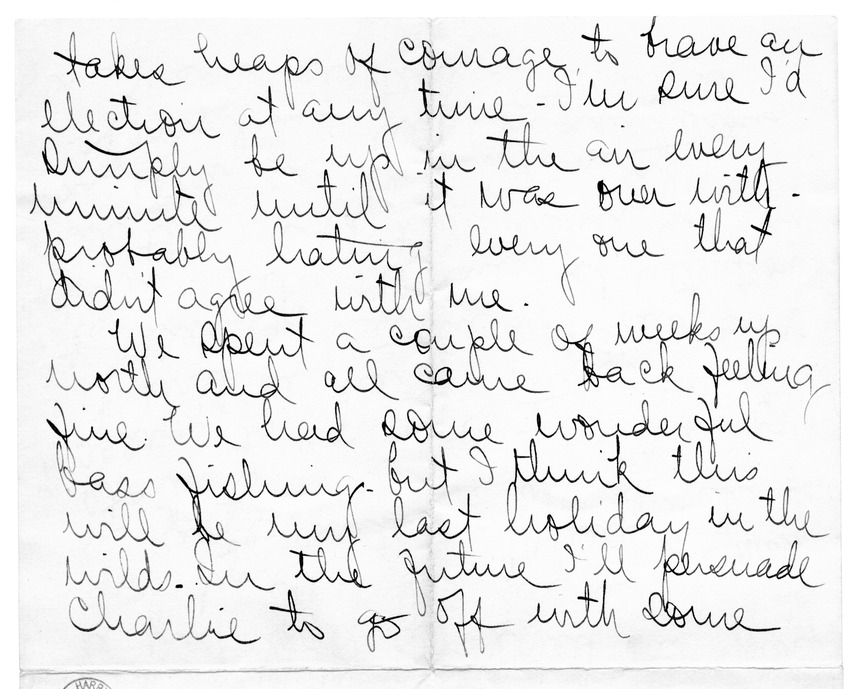 takes heaps of courage to brave an
election at any time - I'm sure I'd
simply be up in the air every
minute until it was over with -
probably hating every one that
didn't agree with me.
We spent a couple of weeks up
north and all came back feeling
fine. We had some wonderful
bass fishing - but I think this
will be my last holiday in the
wilds. In the future I'll persuade
Charlie to go off with some